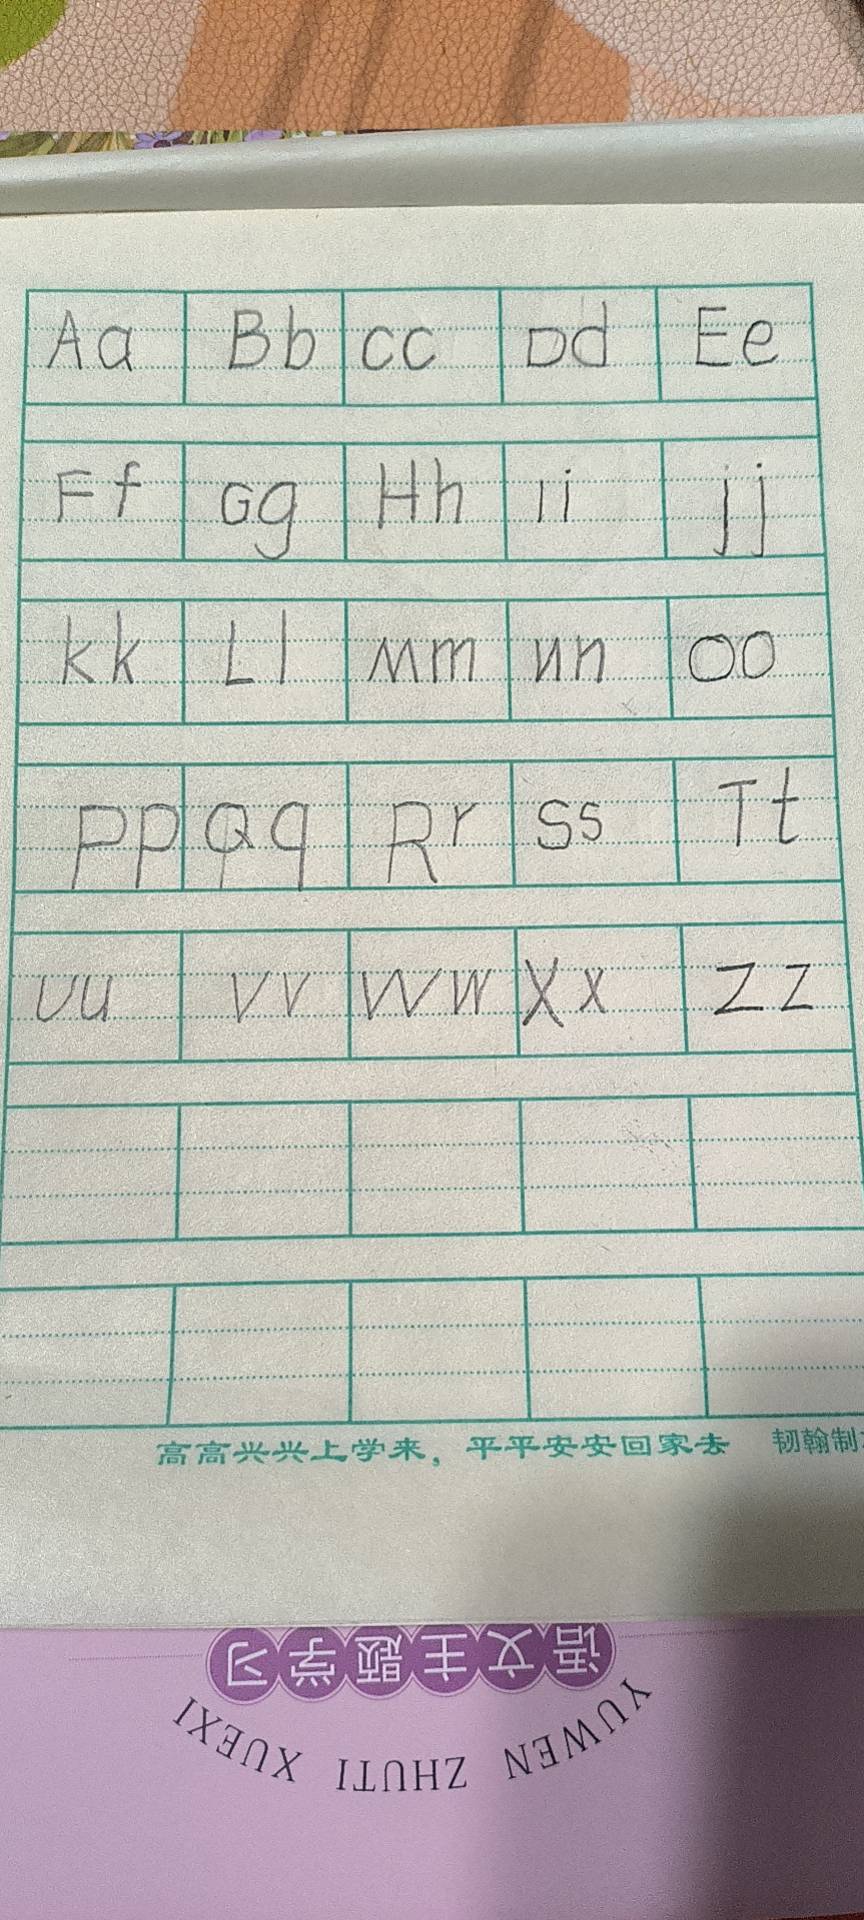 Aa Bb cc Dd Ee
Ff Gg Hh Ii jj
kk Ll Mm nn oo
Pp Qq Rr Ss Tt
Uu Vv Ww Xx Zz
高高兴兴上学来，平平安安回家去 韧翰制
语文主题学习
YUWEN ZHUTI XUEXI